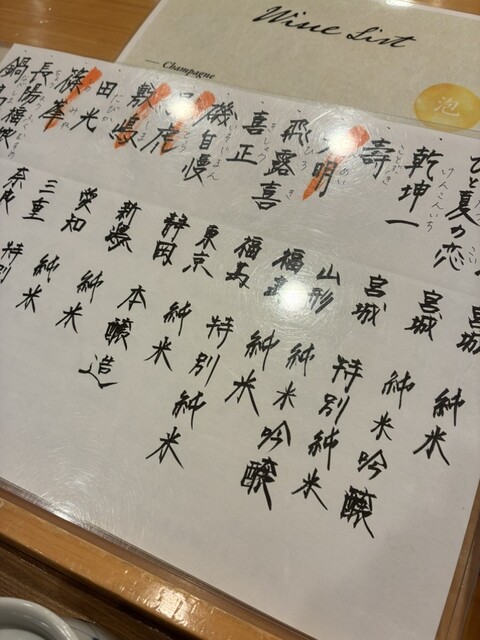 Wine List
Champagne
泡
宮城 純米
ひと夏の恋 宮城 純米吟醸
乾坤一 けんこんいち 宮城 特別純米
壽 ことぶき 山形 純米吟醸
天明 福島 純米
飛露喜 福島 特別純米
喜正 東京 純米
磯自慢 静岡 本醸造
虎 新潟 純米
敷嶋 愛知 純米
田光 三重 特別
篠峯 奈良
長陽福娘
鍋島